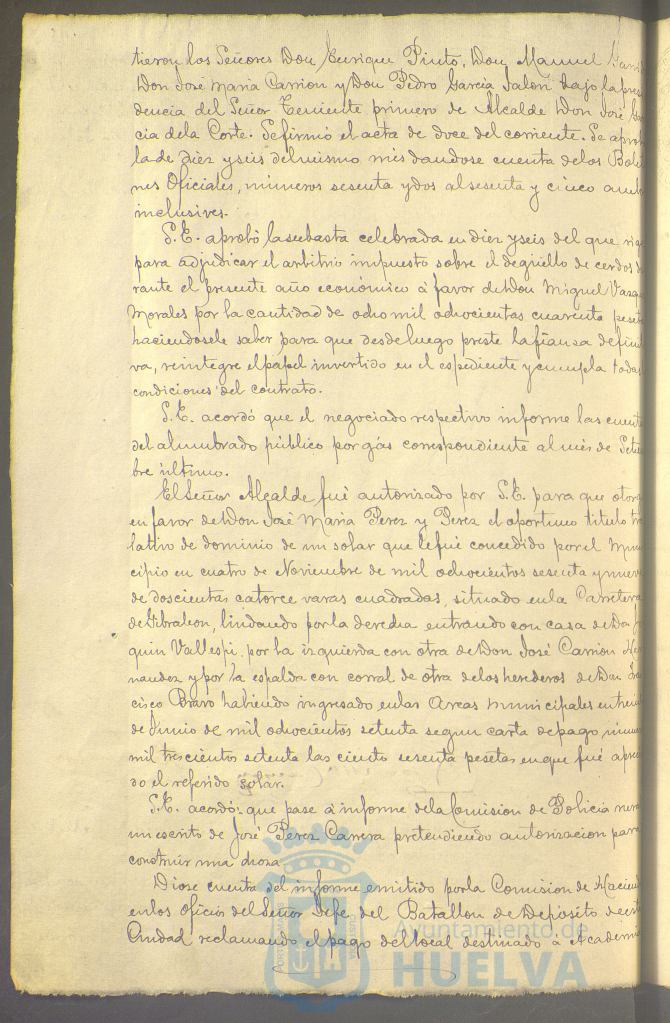 tieron los Señores Don Enrique Pinto, Don Manuel
Don José Maria Carrion y Don Pedro Garcia Jalon bajo la pre
dencia del Señor Teniente primero de Alcalde Don José Ga
cia de la Corte. Se firmó el acta de doce del corriente. Se apro
la de diez y seis del mismo mes dandose cuenta de los Bole
nes Oficiales, números sesenta y dos al sesenta y cinco amb
inclusives.
S.E. aprobó la subasta celebrada en diez y seis del que rige
para adjudicar el arbitrio impuesto sobre el degüello de cerdos d
rante el presente año económico á favor de Don Miguel Vazqu
Morales por la cantidad de ocho mil ochocientas cuarenta peset
haciendosele saber para que desde luego preste la fianza defini
va, reintegre el papel invertido en el espediente y cumpla todas
condiciones del contrato.
S.E. acordó que el negociado respectivo informe las cuent
del alumbrado público por gás correspondiente al mes de Setie
bre último.
El Señor Alcalde fué autorizado por S.E. para que otorg
en favor de Don José Maria Perez y Perez el oportuno titulo tra
lativo de dominio de un solar que le fué concedido por el Muni
cipio en cuatro de Noviembre de mil ochocientos sesenta y nueve
de doscientas catorce varas cuadradas, situado en la Carretera
de Gibraleon, lindando por la derecha entrando con casa de Don J
quin Vallespi, por la izquierda con otra de Don José Carrion He
nandez y por la espalda con corral de otra de los herederos de Don Fra
cisco Bravo habiendo ingresado en las Arcas Municipales en trein
de Junio de mil ochocientos setenta segun carta de pago, núme
mil trescientos setenta las ciento sesenta pesetas en que fué aprecia
do el referido solar.
S.E. acordó: que pase á informe de la Comision de Policia
un escrito de José Perez Carrera pretendiendo autorizacion para
construir una choza
Diose cuenta del informe emitido por la Comision de Hacien
en los oficios del Señor Jefe, del Batallon de Depósito de est
Ciudad reclamando el pago del local destinado á Academi
Ayuntamiento de
HUELVA